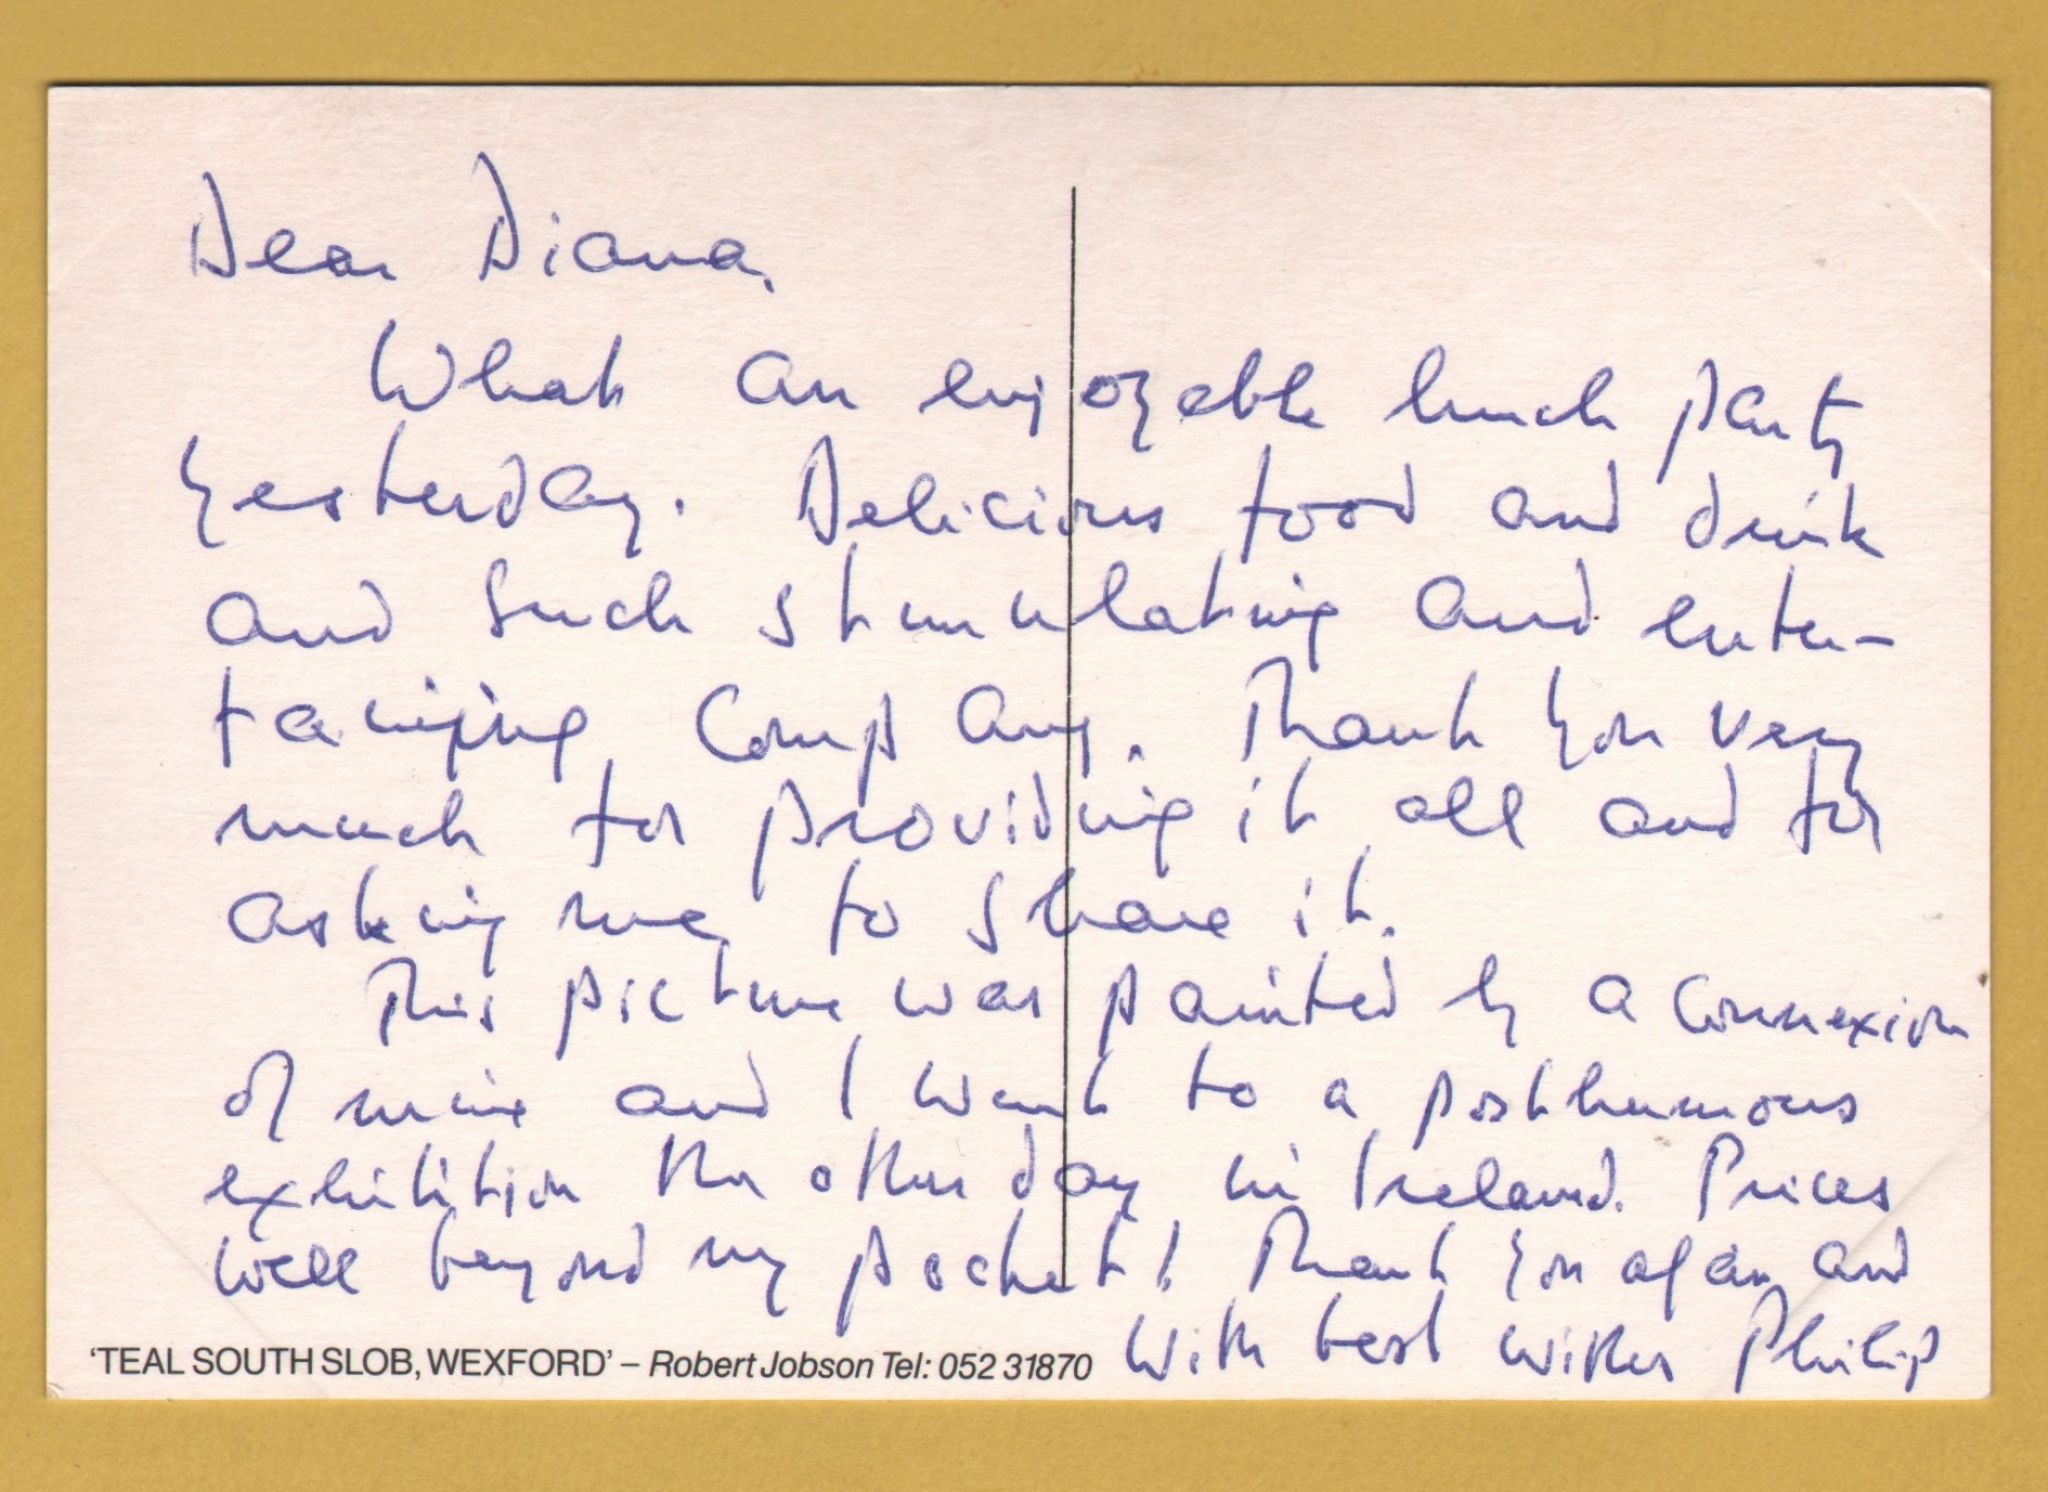 Dear Diana,
What an enjoyable lunch party
yesterday. Delicious food and drink
and such stimulating and enter-
taining company. Thank you very
much for providing it all and for
asking me to share it.
This picture was painted by a connexion
of mine and I went to a posthumous
exhibition the other day in Ireland. Prices
well beyond my pocket! Thank you again and
with best wishes Philip
'TEAL SOUTH SLOB, WEXFORD' – Robert Jobson Tel: 052 31870